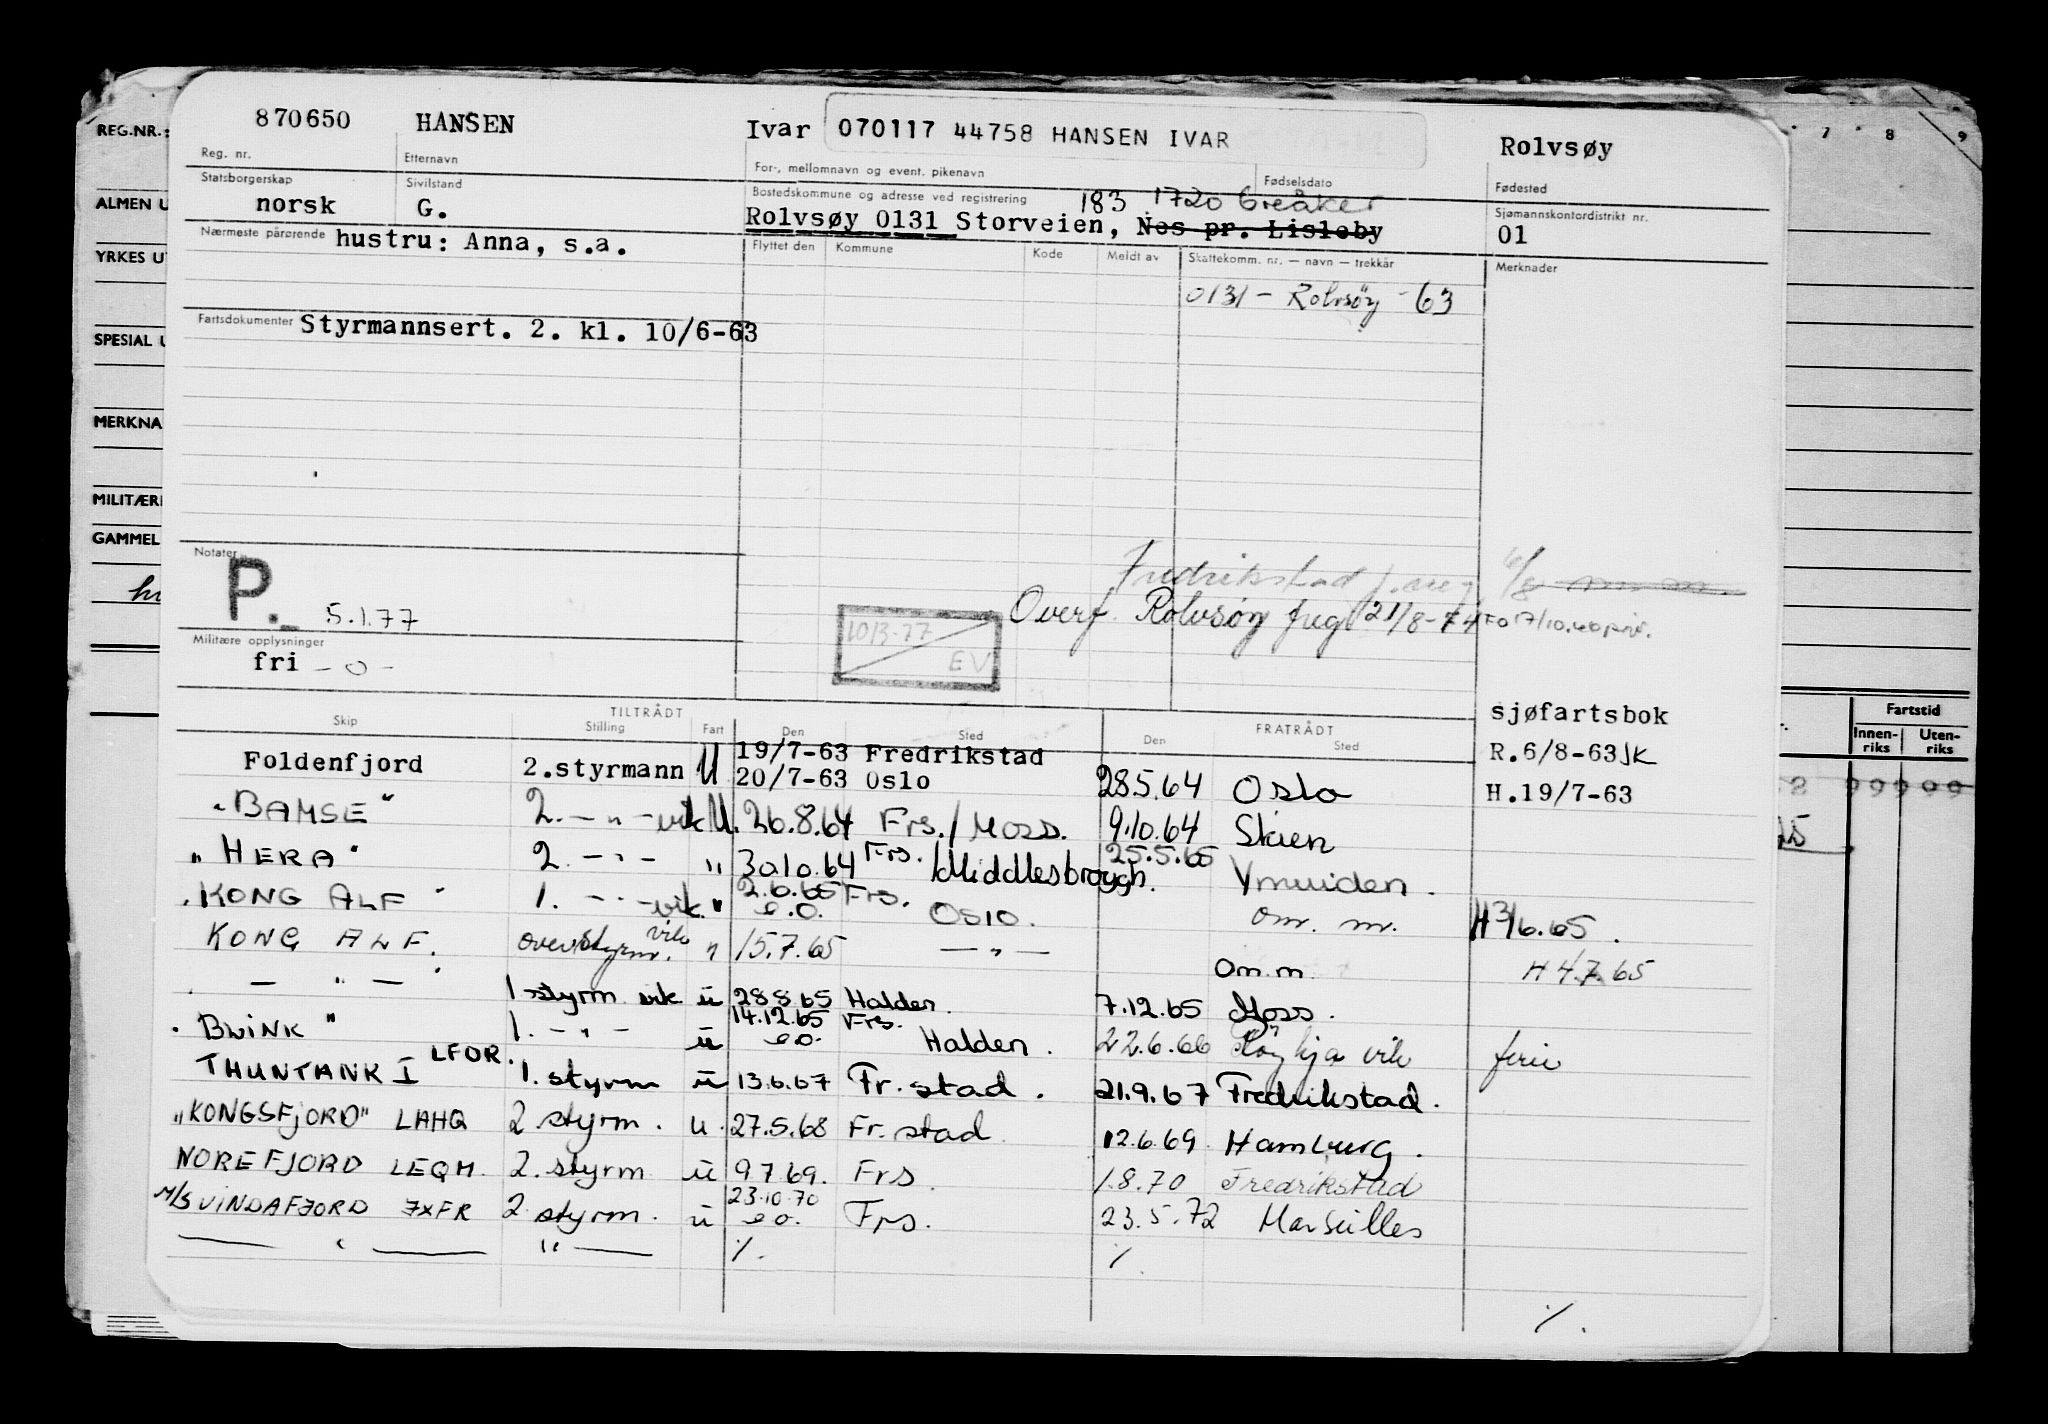 870650 HANSEN Ivar 070117 44758 HANSEN IVAR Rolvsøy
REG.NR.: Reg. nr. Etternavn For-, mellomnavn og event. pikenavn Fødselsdato Fødested 7 8 9
Statsborgerskap Sivilstand Bostedskommune og adresse ved registrering 183 1720 Greåker Sjømannskontordistrikt nr.
ALMEN U norsk G. Rolvsøy 0131 Storveien, Nes pr. Lisleby 01
Nærmeste pårørende hustru: Anna, s.a. Flyttet den Kommune Kode Meldt av Skattekomm. nr. — navn — trekkår Merknader
YRKES U
0131 - Rolvsøy - 63
Fartsdokumenter Styrmannsert. 2. kl. 10/6-63
SPESIAL U
MERKNA
MILITÆRE
GAMMEL
Notater
P. 5.1.77
Fredrikstad
Overf. Rolvsøy freg 21/8-74
1013-77
EV
Militære opplysninger
fri - 0 -
TILTRÅDT FRATRÅDT sjøfartsbok
Skip Stilling Fart Den Sted Den Sted Fartstid
Innen-riks Uten-riks
Foldenfjord 2.styrmann U 19/7-63 Fredrikstad R.6/8-63 JK
20/7-63 Oslo 28.5.64 Oslo H.19/7-63
"BAMSE" 2. - " - vik U. 26.8.64 Frs./Moss. 9.10.64 Skien
"HERA" 2. - " - " 30.10.64 Frs. /Middlesbrough. 25.5.65 Ymuiden.
"KONG ALF" 1. - " - vik. " 2.6.65 Frs. e.o. Oslo. om. m. H 3/6.65.
KONG ALF. overstyrm. vik " 15.7.65 — " — Om.m. H 4.7.65
— " — 1 styrm vik u 28.8.65 Halden. 7.12.65 Moss.
"BLINK" 1. - " - u 14.12.65 Frs. e.o. Halden. 22.6.66 vik ferie
THUNTANK I LFOR. 1. styrm u 13.6.67 Fr.stad. 21.9.67 Fredrikstad.
"KONGSFJORD" LAHQ 2 styrm. u. 27.5.68 Fr.stad 12.6.69 Hamburg.
NOREFJORD LEQM. 2. styrm u 9.7.69. Frs. 1.8.70 Fredrikstad
M/S VINDAFJORD JXFR 2 styrm. u 23.10.70 e.o. Frs. 23.5.72 Marseilles
— " — " — %. %
%.